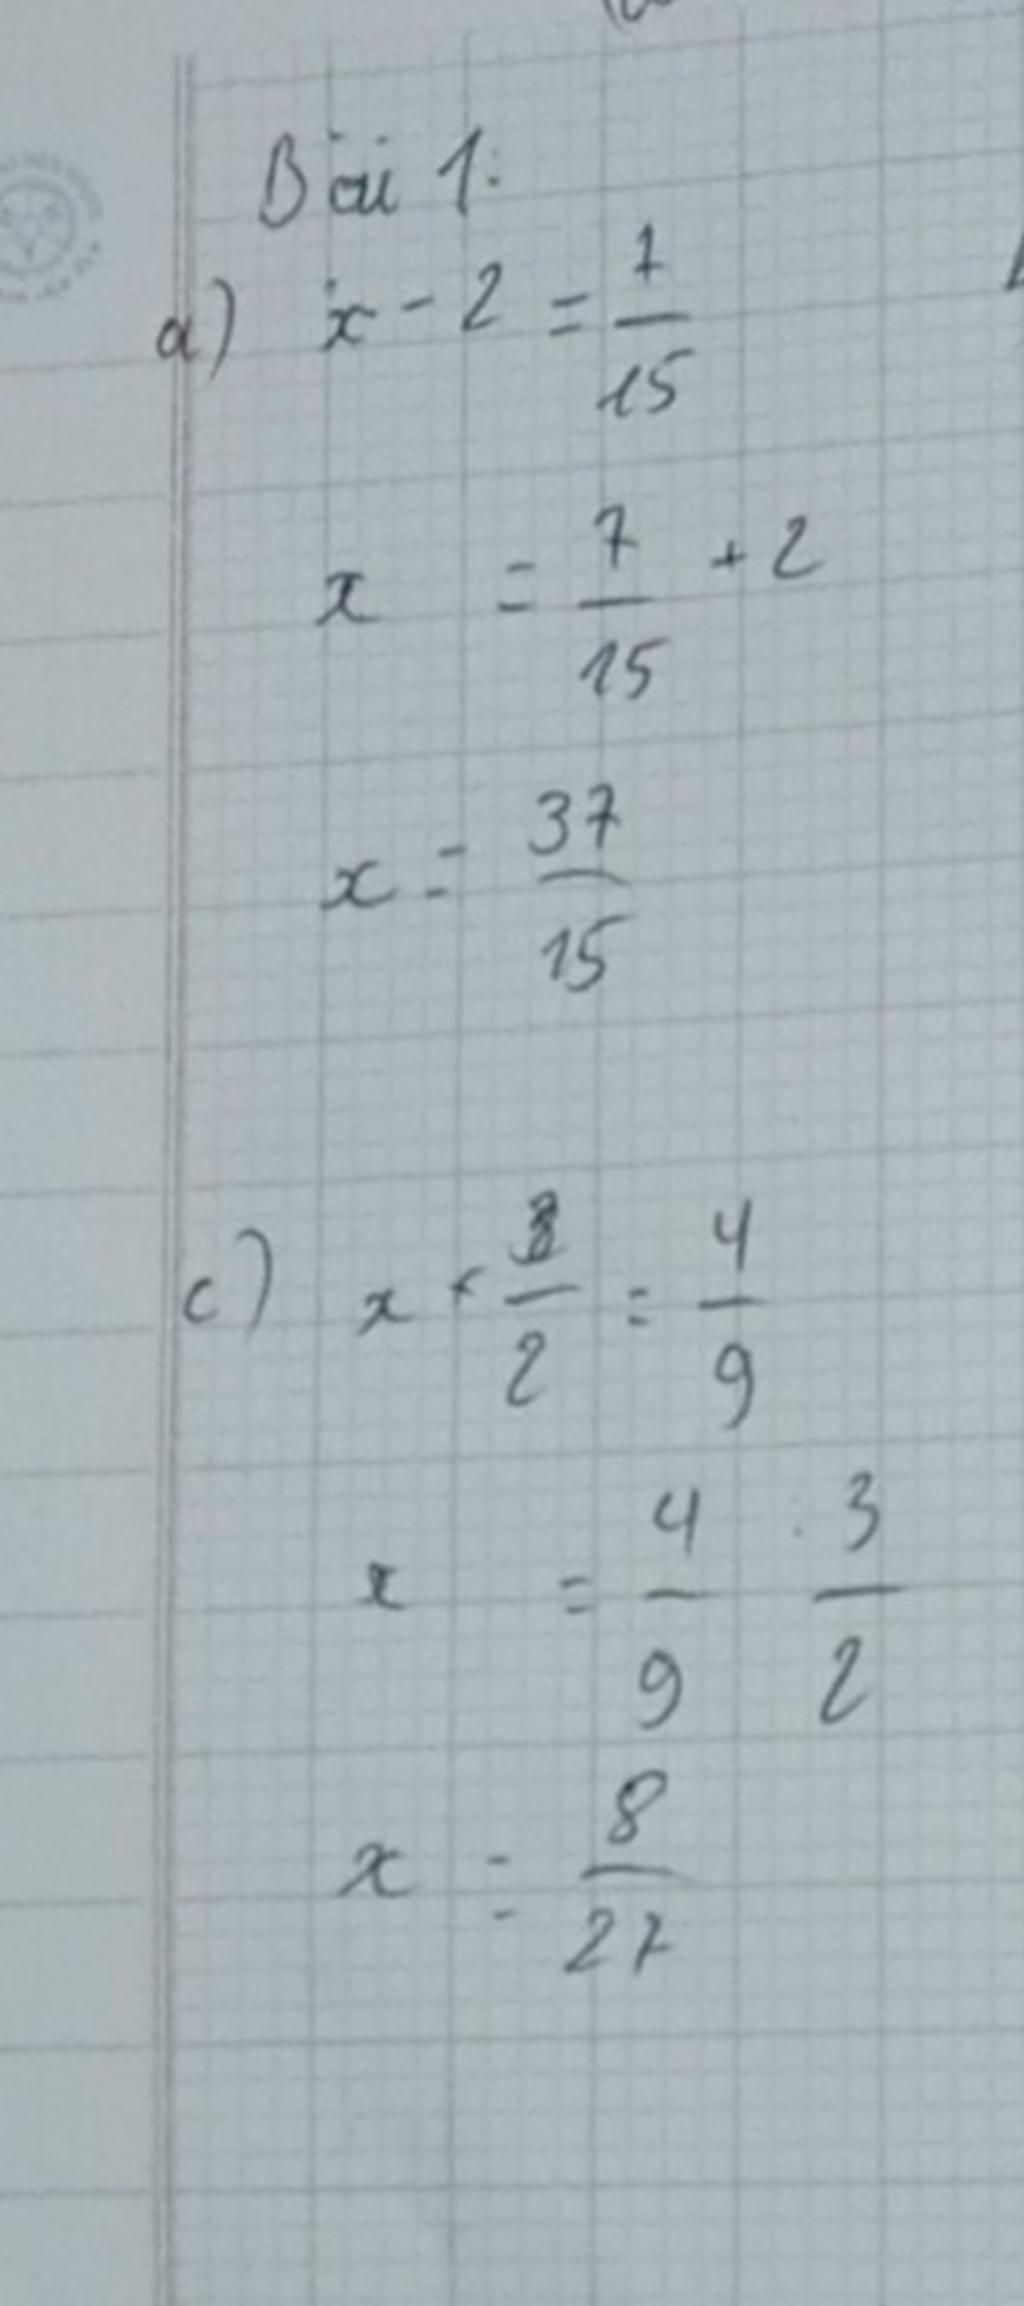 Bài 1:
a) x - 2 = 7/15
x = 7/15 + 2
x = 37/15
c) x × 3/2 = 4/9
x = 4/9 : 3/2
x = 8/27